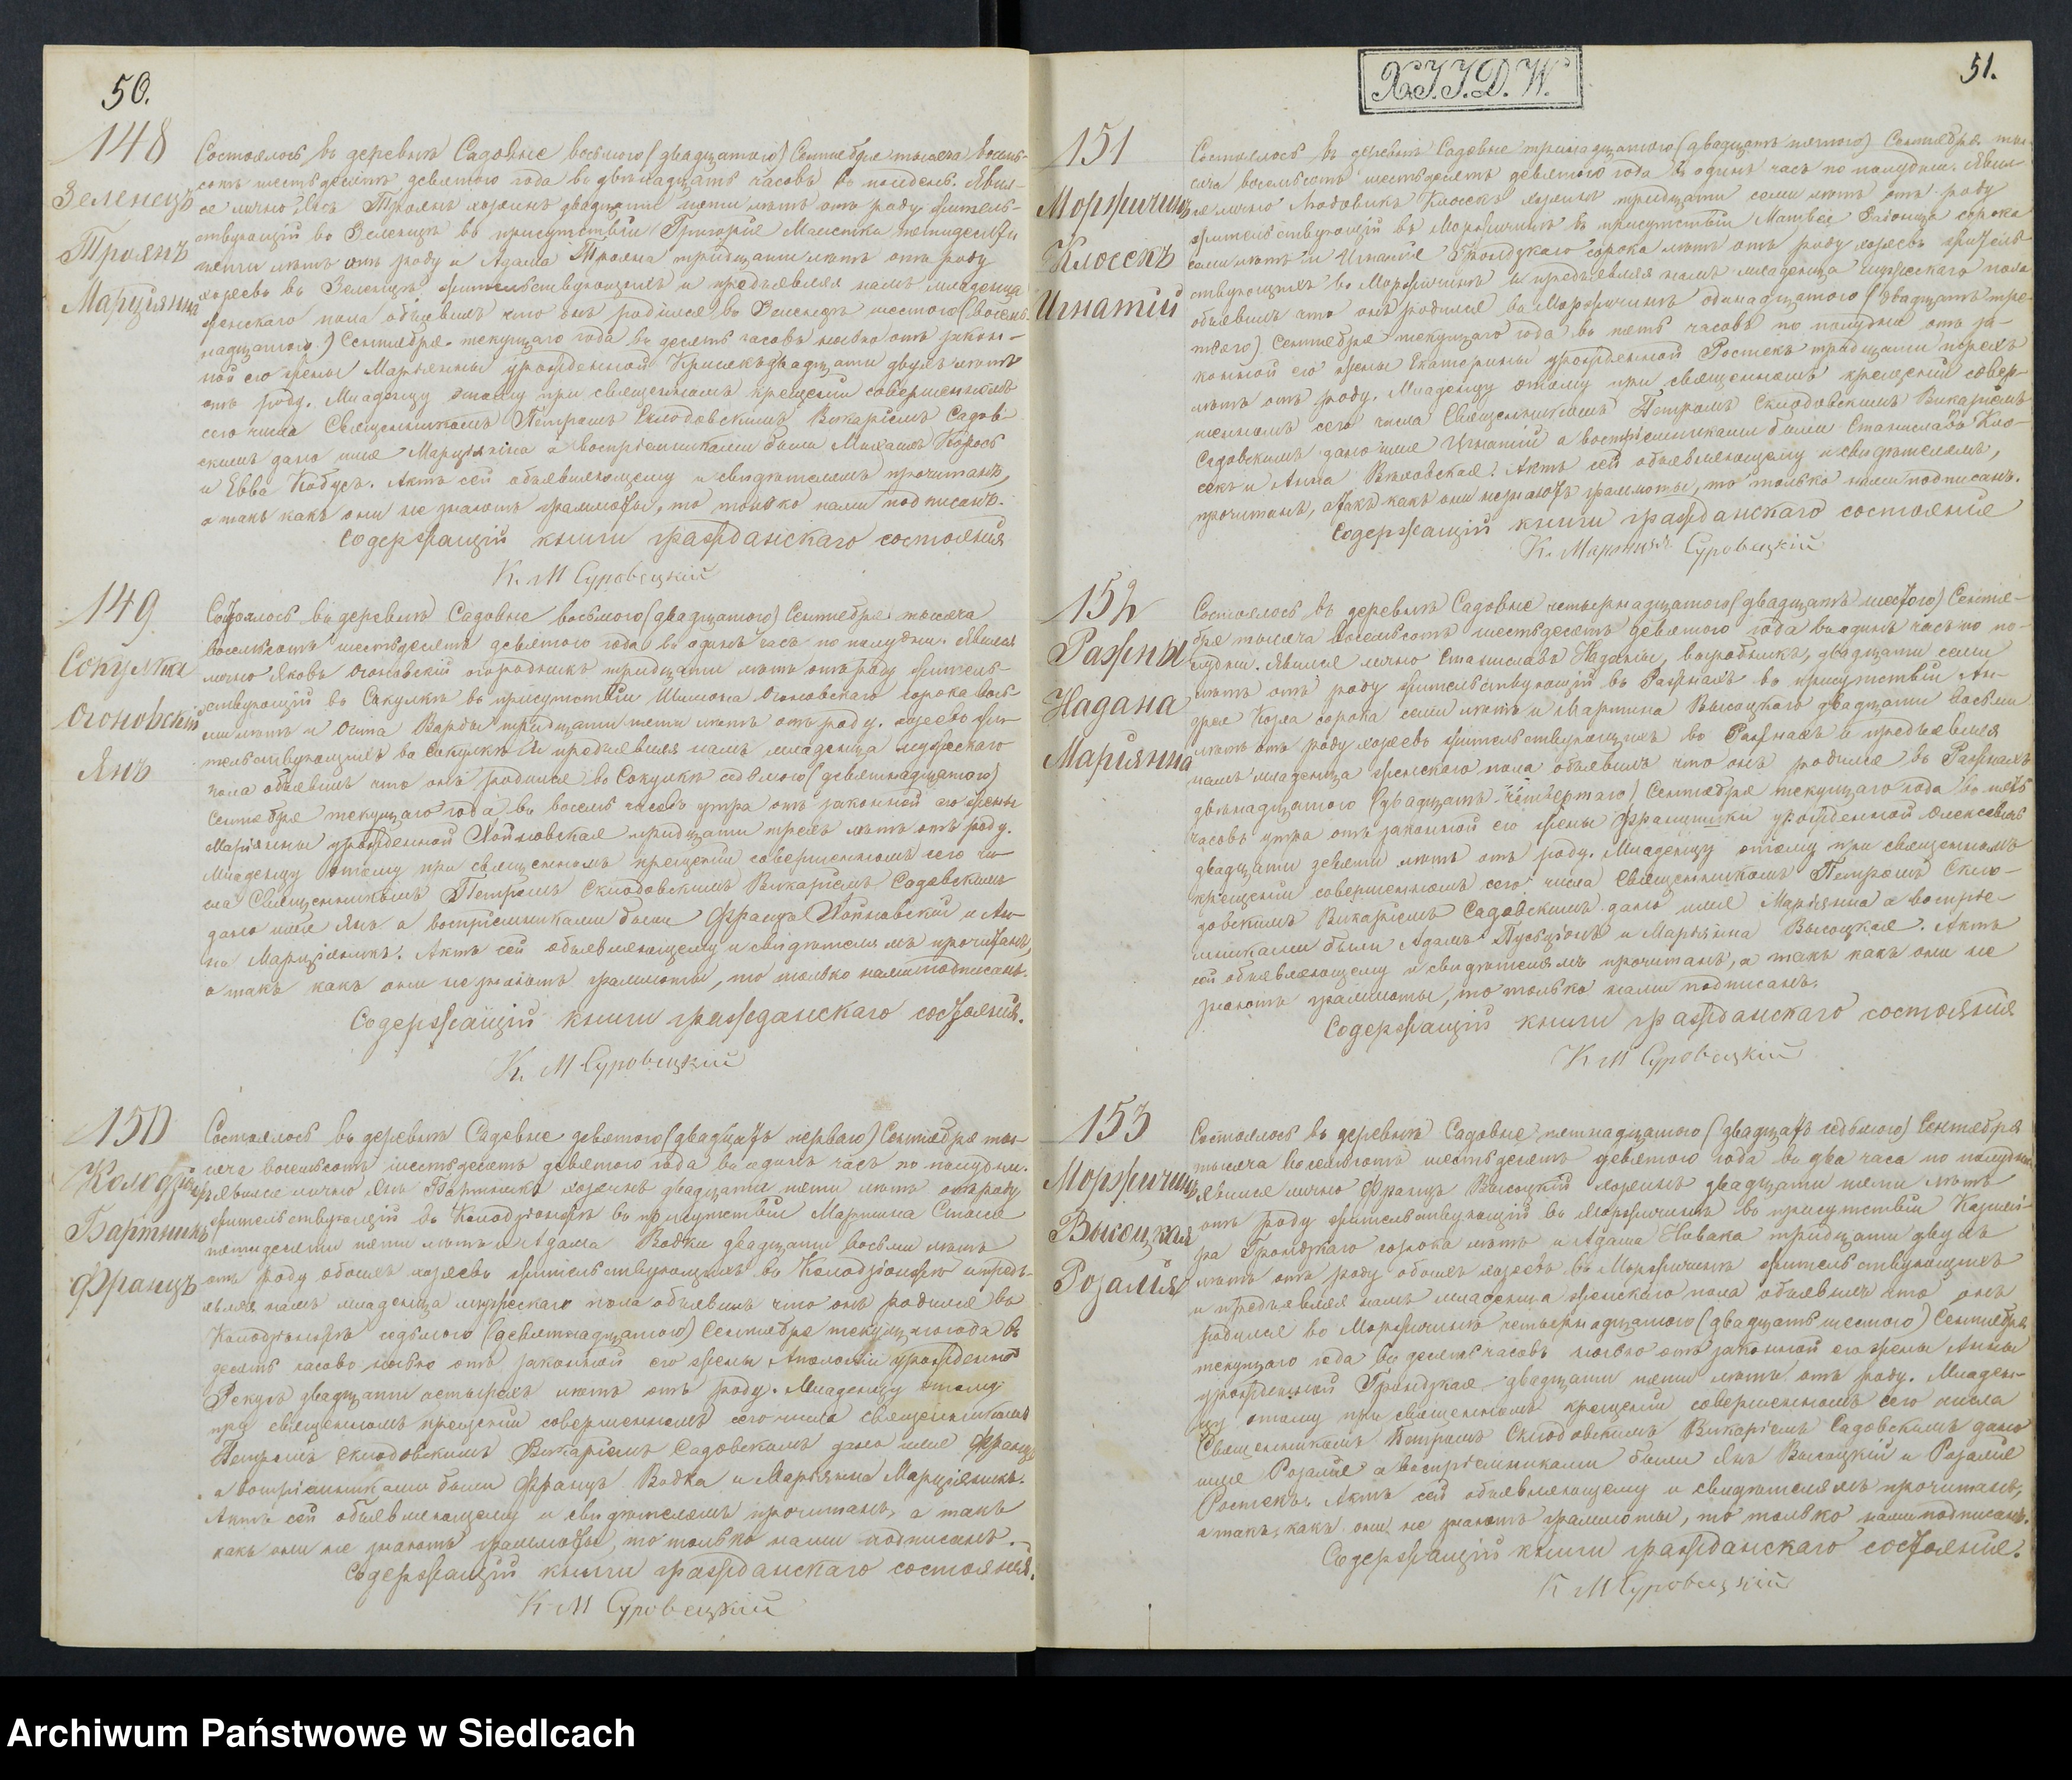 50.
148
Зеленецъ
Троянъ
Марціянна
Состоялось въ деревнѣ Садовне восьмого (двадцатого) Сентября тысяча восемь-
сотъ шестьдесятъ девятого года въ двѣнадцать часовъ въ полдень. Явил-
ся лично Троянъ хозяинъ двадцати пяти лѣтъ отъ роду житель-
ствующій въ Зеленцѣ въ присутствіи Григорія пятидесяти
пяти лѣтъ отъ роду и Адама Трояна тридцати лѣтъ отъ роду
хозяевъ въ Зеленцѣ жительствующихъ и предъявляя намъ младенца
женскаго пола объявилъ что онъ родился въ Зеленцѣ шестого (восем-
надцатого) Сентября текущаго года въ десять часовъ ночью отъ закон-
ной его жены Марьянны урожденной двадцати двухъ лѣтъ
отъ роду. Младенцу этому при священномъ крещеніи совершенномъ
сего числа Священникомъ Петромъ Склодовскимъ Викаріемъ Садов-
скимъ дано имя Марціянна а воспріемниками были Михаилъ
и Евва Кобусъ. Актъ сей объявляющему и свидѣтелямъ прочитанъ,
а такъ какъ они не знаютъ граммоты, то только нами подписанъ.
Содержащій книги гражданскаго состоянія
К. М Суровецкій
149
Сокулка
Огоновскій
Янъ
Состоялось въ деревнѣ Садовне восьмого (двадцатого) Сентября тысяча
восемьсотъ шестьдесятъ девятого года въ одинъ часъ по полудни. Явился
лично Яковъ Огоновскій тридцати лѣтъ отъ роду житель-
ствующій въ Сокулкѣ въ присутствіи Шимона Огоновскаго сорока вось-
ми лѣтъ и Осипа Варды тридцати пяти лѣтъ отъ роду. хозяевъ жи-
тельствующихъ въ Сокулкѣ и предъявляя намъ младенца мужескаго
пола объявилъ что онъ родился въ Сокулкѣ седьмого (девятнадцатого)
Сентября текущаго года въ восемь часовъ утра отъ законной его жены
Марьянны урожденной Пойловская тридцати трехъ лѣтъ отъ роду.
Младенцу этому при священномъ крещеніи совершенномъ сего чи-
сла Священникомъ Петромъ Склодовскимъ Викаріемъ Садовскимъ
дано имя Янъ а воспріемниками были Франца Пойловскій и Ан-
на Марціянякъ. Актъ сей объявляющему и свидѣтелямъ прочитанъ,
а такъ какъ они не знаютъ граммоты, то только нами подписанъ.
Содержащій книги гражданскаго состоянія.
К. М Суровецкій
150
Бартникъ
Францъ
Состоялось въ деревнѣ Садовне девятого (двадцать перваго) Сентября ты-
сяча восемьсотъ шестьдесятъ девятого года въ одинъ часъ по полудни.
Явился лично Янъ Бартникъ хозяинъ двадцати пяти лѣтъ отъ роду
жительствующій въ Колодзіонжѣ въ присутствіи Мартина Стася
пятидесяти пяти лѣтъ и Адама Водки двадцати восьми лѣтъ
отъ роду обоихъ хозяевъ жительствующихъ въ Колодзіонжѣ и предъ-
являя намъ младенца мужескаго пола объявилъ что онъ родился въ
Колодзіонжѣ седьмого (девятнадцатого) Сентября текущаго года въ
десять часовъ ночью отъ законной его жены Аполоніи урожденной
Рекусъ двадцати четырехъ лѣтъ отъ роду. Младенцу этому
при священномъ крещеніи совершенномъ сего числа священникомъ
Петромъ Склодовскимъ Викаріемъ Садовскимъ дано имя Францъ
а воспріемниками были Францъ Водка и Марьянна Марціянякъ.
Актъ сей объявляющему и свидѣтелямъ прочитанъ, а такъ
какъ они не знаютъ граммоты, то только нами подписанъ.
Содержащій книги гражданскаго состоянія.
К М Суровецкій
X.J.J.D.W.
51.
151
Моржичинъ
Клосекъ
Игнатій
Состоялось въ деревнѣ Садовне тринадцатого (двадцать пятого) Сентября ты-
сяча восемьсотъ шестьдесятъ девятого года въ одинъ часъ по полудни. Явил-
ся лично Людовикъ Клосекъ хозяинъ тридцати семи лѣтъ отъ роду
жительствующій въ Моржичинѣ въ присутствіи Матвѣя сорока
семи лѣтъ и Игнатія сорока лѣтъ отъ роду хозяевъ житель-
ствующихъ въ Моржичинѣ и предъявляя намъ младенца мужескаго пола
объявилъ что онъ родился въ Моржичинѣ одинадцатого (двадцать тре-
тьяго) Сентября текущаго года въ пять часовъ по полудни отъ за-
конной его жены Екатерины урожденной Ростекъ тридцати трехъ
лѣтъ отъ роду. Младенцу этому при священномъ крещеніи совер-
шенномъ сего числа Священникомъ Петромъ Склодовскимъ Викаріемъ
Садовскимъ дано имя Игнатій а воспріемниками были Станиславъ Кло-
секъ и Анна. Актъ сей объявляющему и свидѣтелямъ,
прочитанъ, а такъ какъ они не знаютъ граммоты, то только нами подписанъ.
Содержащій книги гражданскаго состоянія
К. Суровецкій
152
Ражны
Надана
Маріянна
Состоялось въ деревнѣ Садовне четырнадцатого (двадцать шестого) Сентя-
бря тысяча восемьсотъ шестьдесятъ девятого года въ одинъ часъ по по-
лудни. Явился лично Станиславъ Надана, выробникъ, двадцати семи
лѣтъ отъ роду жительствующій въ Ражнахъ въ присутствіи Ан-
дрея Козла сорока семи лѣтъ и Мартина Высоцкаго двадцати восьми
лѣтъ отъ роду хозяевъ жительствующихъ въ Ражнахъ и предъявляя
намъ младенца женскаго пола объявилъ что онъ родился въ Ражнахъ
двѣнадцатого (двадцать четвертаго) Сентября текущаго года въ пять
часовъ утра отъ законной его жены Францишки урожденной Олексякъ
двадцати девяти лѣтъ отъ роду. Младенцу этому при священномъ
крещеніи совершенномъ сего числа Священникомъ Петромъ Скло-
довскимъ Викаріемъ Садовскимъ дано имя Марьянна а воспріе-
мниками были Адамъ и Марьянна Высоцкая. Актъ
сей объявляющему и свидѣтелямъ прочитанъ, а такъ какъ они не
знаютъ граммоты, то только нами подписанъ.
Содержащій книги гражданскаго состоянія
К М Суровецкій
153
Моржичинъ
Высоцкая
Розалія
Состоялось въ деревнѣ Садовне пятнадцатого (двадцать седьмого) Сентября
тысяча восемьсотъ шестьдесятъ девятого года въ два часа по полудни.
Явился лично Францъ Высоцкій хозяинъ двадцати пяти лѣтъ
отъ роду жительствующій въ Моржичинѣ въ присутствіи Казимі-
ра Грондзкаго сорока лѣтъ и Адама Новака тридцати двухъ
лѣтъ отъ роду обоихъ хозяевъ въ Моржичинѣ жительствующихъ
и предъявляя намъ младенца женскаго пола объявилъ что онъ
родился въ Моржичинѣ четырнадцатого (двадцать шестого) Сентября
текущаго года въ десять часовъ ночью отъ законной его жены Анны
урожденной Грондзкая двадцати пяти лѣтъ отъ роду. Младен-
цу этому при священномъ крещеніи совершенномъ сего числа
Священникомъ Петромъ Склодовскимъ Викаріемъ Садовскимъ дано
имя Розалія а воспріемниками были Янъ Высоцкій и Розалія
Ростекъ. Актъ сей объявляющему и свидѣтелямъ прочитанъ,
а такъ какъ они не знаютъ граммоты, то только нами подписанъ.
Содержащій книги гражданскаго состоянія.
К М Суровецкій
Archiwum Państwowe w Siedlcach